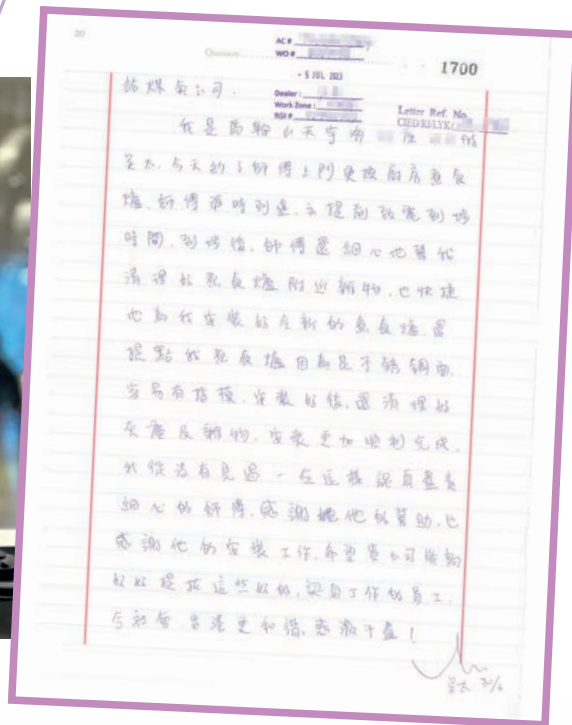 20
AC #
WO #
- 5 JUL 2023
1700
Dealer :
Work Zone :
RGI #
Letter Ref. No.
CIED/EI/LYK/
致煤氣公司.
我是 天宇海 座 的
吳太, 今天約了師傅上門更換廚房煮食
爐, 師傅準時到達, 亦提前致電到場
時間, 到場後, 師傅還細心地幫忙
清理好煮食爐附近雜物, 也快捷
地為我安裝好全新的煮食爐, 還
提點我煮食爐因為是不銹鋼面,
容易有指模, 安裝好後, 還清理好
灰塵及雜物, 安裝更加順利完成,
我從沒有見過一位這樣認真盡責
細心的師傅, 感謝 他的幫助, 也
感謝他的安裝工作, 希望貴公司能夠
好好提拔這些好的, 認真工作的員工,
令社會香港更和諧, 感激不盡!
吳太 30/6